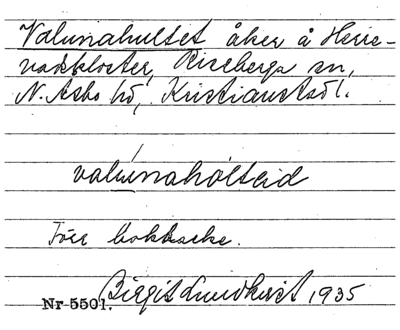 Valunahultet åker å Herre-
vadskloster, Riseberga sn,
N. Åsbo hd, Kristianstads l.
valúnahòltəd
Förr bokbacke.
Nr 5501. Birgit Lundkvist 1935